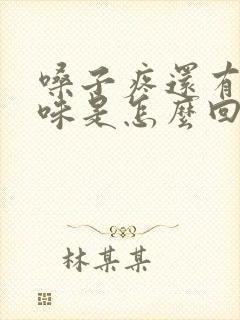 嗓子疼還有
味是怎麼回
林某某